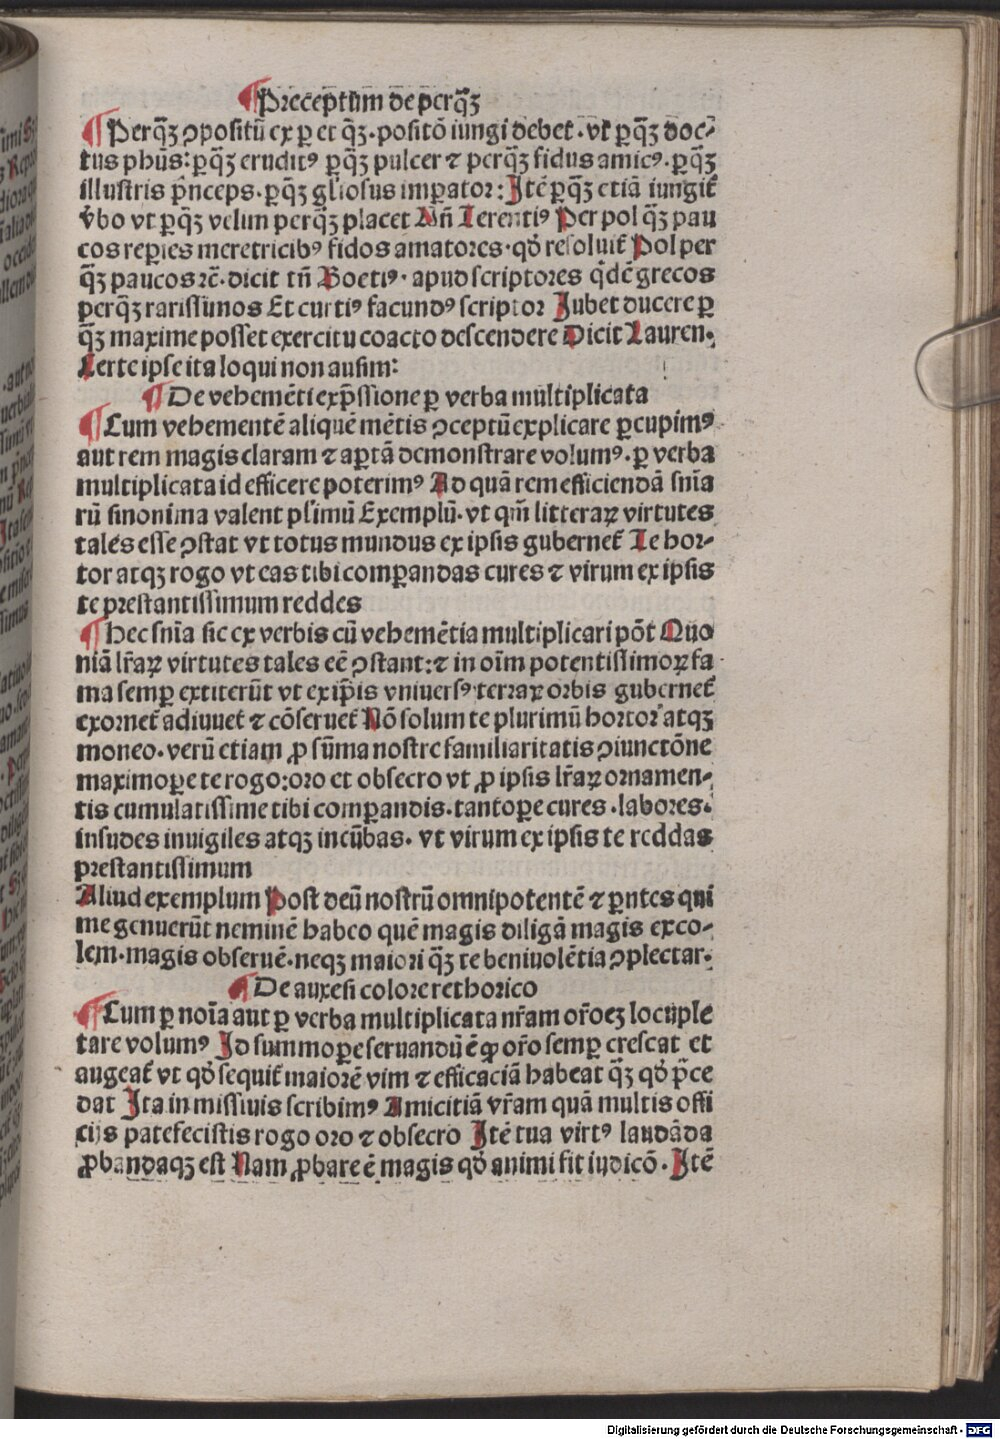 ¶ Preceptum de perqꝫ̄
¶ Perqꝫ̄ ꝯpositū ex ꝑ et qꝫ̄. positō iungi debet. vt ꝑqꝫ̄ doc⸗
tus phūs: ꝑqꝫ̄ eruditꝰ ꝑqꝫ̄ pulcer ⁊ perqꝫ̄ fidus amicꝰ. ꝑqꝫ̄
illustris pͥnceps. ꝑqꝫ̄ gl̄iosus imꝑator: Itē ꝑqꝫ̄ etiā iungit̄
v̄bo vt ꝑqꝫ̄ velim perqꝫ̄ placet Nn̄ Terentiꝰ Per pol qꝫ̄ pau
cos reꝑies meretricibꝰ fidos amatores. qd̓ resoluit̄ Pol per
qꝫ̄ paucos rc̄. dicit tn̄ Boetiꝰ. apud scriptores qͥdē grecos
perqꝫ̄ rarissimos Et curtiꝰ facundꝰ scriptor Jubet ducere ꝑ
qꝫ̄ maxime posset exercitu coacto descendere Dicit Lauren.
Certe ipse ita loqui non ausim:
¶ De vehemēti exp̄ssione ꝑ verba multiplicata
¶ Cum vehementē aliquē mētis ꝯceptū explicare ꝑcupimꝰ
aut rem magis claram ⁊ aꝑtā demonstrare volumꝰ. ꝑ verba
multiplicata id efficere poterimꝰ Ad quā rem efficiendā sn̄ia
rū sinonima valent pl̓imū Exemplū. vt qm̄ litteraꝝ virtutes
tales esse ꝯstat vt totus mundus ex ipsis gubernet̄ Te hor⸗
tor atqꝫ rogo vt eas tibi comꝑandas cures ⁊ virum ex ipsis
te prestantissimum reddes
¶ Hec sn̄ia sic ex verbis cū vehemētia multiplicari pōt Quo
niā lr̄aꝝ virtutes tales eē ꝯstant: ⁊ in oīm potentissimoꝝ fa
ma semꝑ extiterūt vt ex ip̄is vniuersꝰ terraꝝ orbis gubernet̄
exornet̄ adiuuet̄ ⁊ cōseruet̄ Nō solum te plurimū hortor atqꝫ
moneo. verū etiam ꝓ sūma nostre familiaritatis ꝯiunctōne
maximoꝑe te rogo: oro et obsecro vt ꝓ ipsis lr̄aꝝ ornamen⸗
tis cumulatissime tibi comꝑandis. tantoꝑe cures. labores.
insudes inuigiles atqꝫ incūbas. vt virum ex ipsis te reddas
prestantissimum
Aliud exemplum Post deū nostrū omnipotentē ⁊ ꝑntes qui
me genuerūt neminē habeo quē magis diligā magis exco⸗
lem. magis obseruē. neqꝫ maiori qꝫ̄ te beniuolētia ꝯplectar.
¶ De auxesi colore rethorico
¶ Cum ꝑ noīa aut ꝑ verba multiplicata nr̄am or̄oeꝫ locuple
tare volumꝰ Id summoꝑe seruandū ē ꝙ or̄o semꝑ crescat et
augeat̄ vt qd̓ sequit̄ maiorē vim ⁊ efficaciā habeat qꝫ̄ qd̓ p̄ce
dat Ita in missiuis scribimꝰ Amicitiā vr̄am quā multis offi
cijs patefecistis rogo oro ⁊ obsecro Itē tua virtꝰ laudāda
ꝓbandaqꝫ est Nam ꝓbare ē magis qd̓ animi fit iudicō. Itē
Digitalisierung gefördert durch die Deutsche Forschungsgemeinschaft - DFG